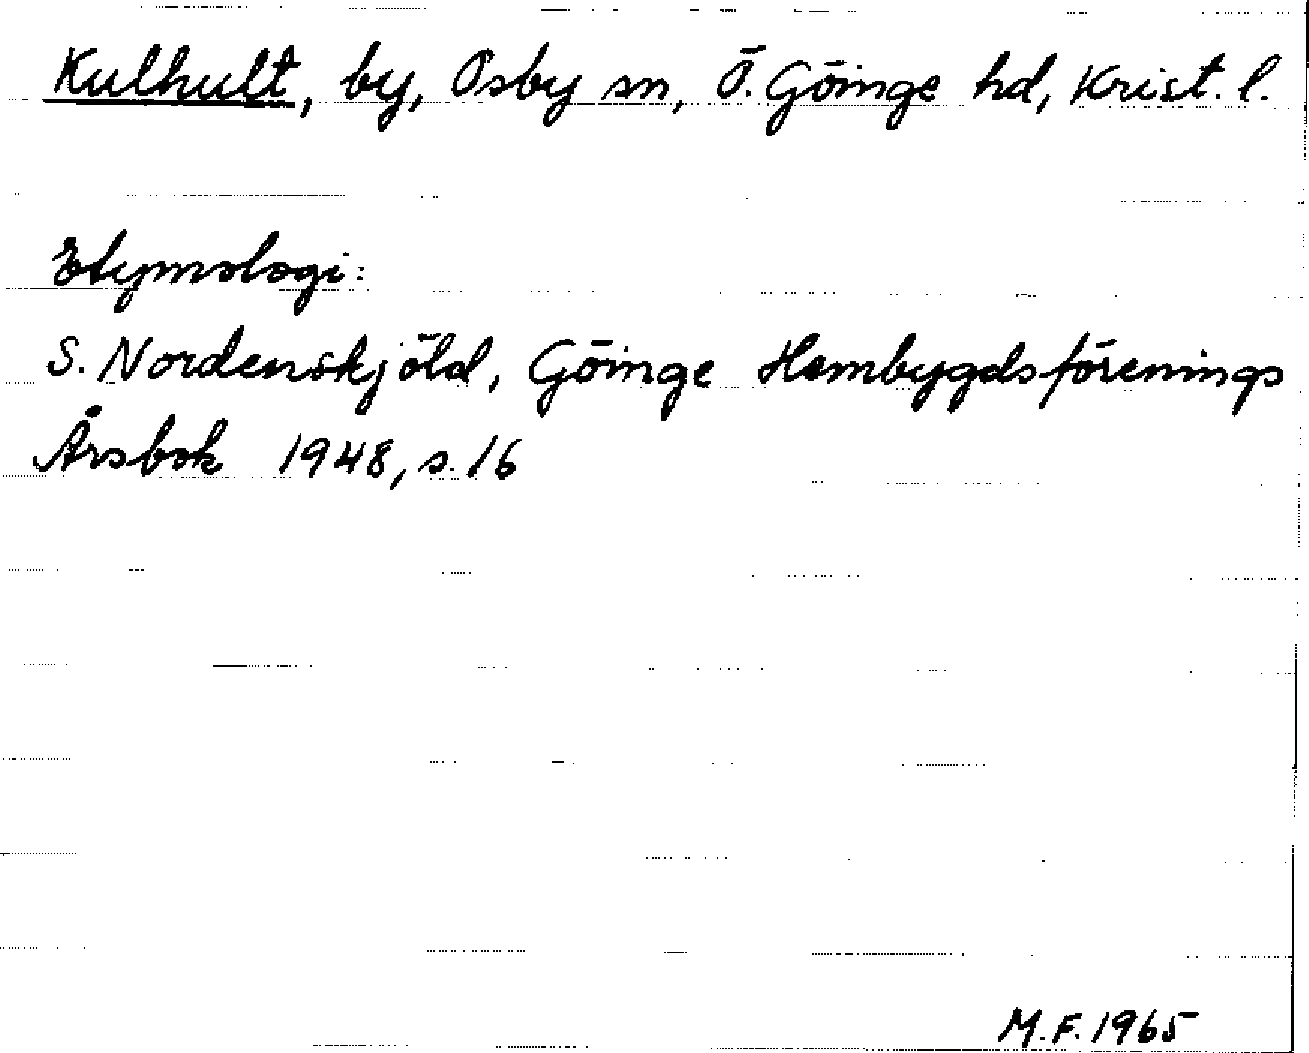 Kulhult, by, Osby sn, Ö. Göinge hd, Krist. l.
Etymologi:
S. Nordenskjöld, Göinge Hembygdsförenings
Årsbok 1948, s. 16
M.F. 1965